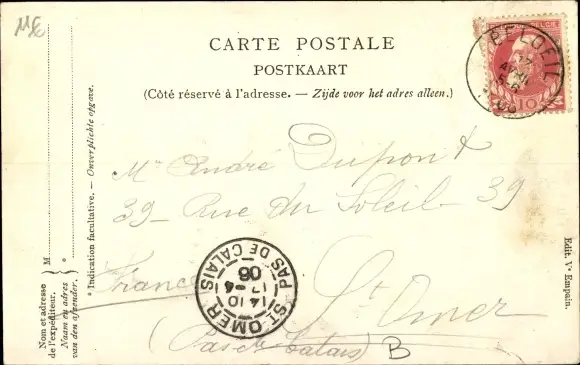 ME
CARTE POSTALE
POSTKAART
(Côté réservé à l'adresse. — Zijde voor het adres alleen.)
BELGIE
10
BELOEIL
17
5-6
06
Mr André Dupont
39 - Rue du Soleil - 39
France
St Omer
(Pas de Calais)
B
ST OMER
PAS DE CALAIS
14 10
17 -4
06
* Indication facultative. — Onverplichte opgave.
M
*
Nom et adresse
de l'expéditeur.
Naam en adres
van den afzender.
Edit. Ve Empain.